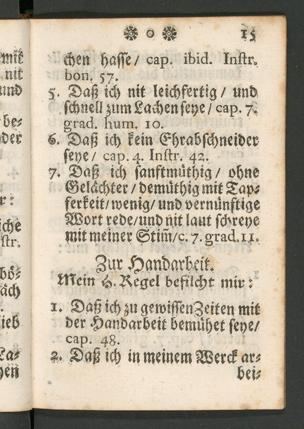 ❀ o ❀ 15
chen hasse / cap. ibid. Instr.
bon. 57.
5. Daß ich nit leichfertig / und
schnell zum Lachen seye / cap. 7.
grad. hum. 10.
6. Daß ich kein Ehrabschneider
seye / cap. 4. Instr. 42.
7. Daß ich sanfftmüthig / ohne
Gelächter / demüthig mit Tap-
ferkeit / wenig / und vernünftige
Wort rede / und nit laut schreye
mit meiner Stim̃ / c. 7. grad. 11.
Zur Handarbeit.
Mein H. Regel befilcht mir:
1. Daß ich zu gewissen Zeiten mit
der Handarbeit bemühet seye /
cap. 48.
2. Daß ich in meinem Werck ar-
bei-